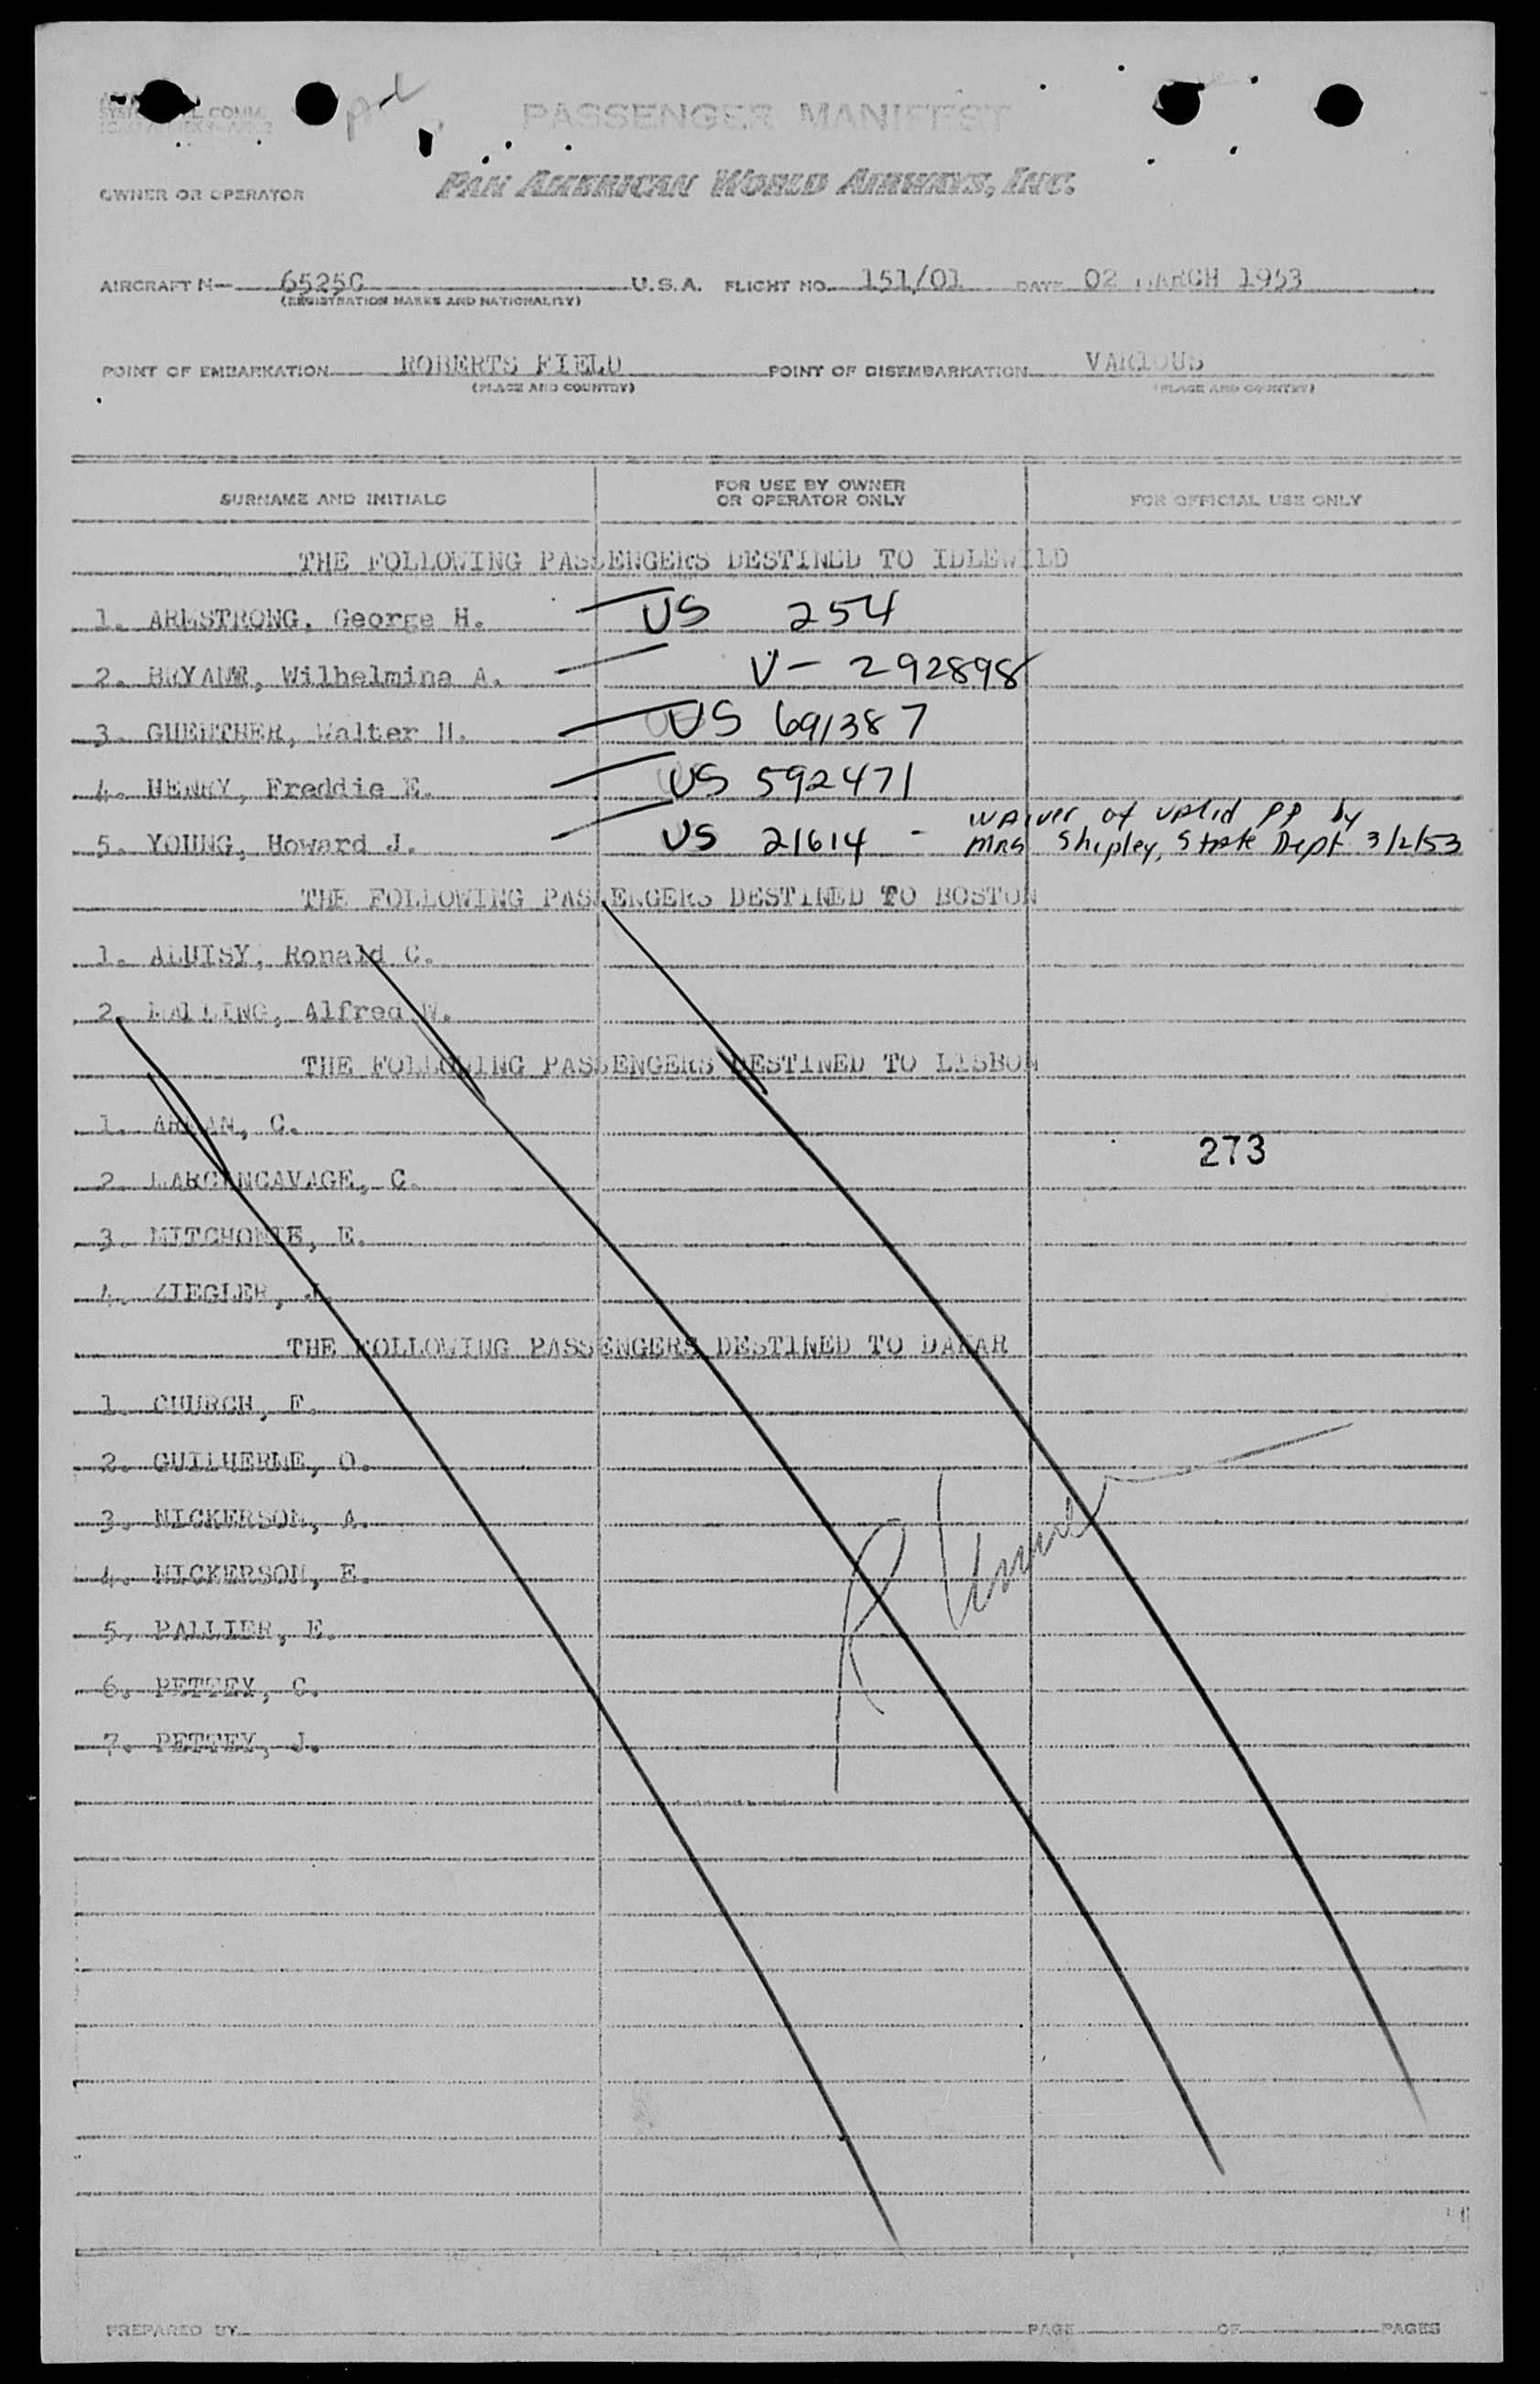 PASSENGER MANIFEST
OWNER OR OPERATOR PAN AMERICAN WORLD AIRWAYS, INC.
AIRCRAFT N- 6525C U.S.A. FLIGHT NO. 151/01 DATE 02 MARCH 1953
(REGISTRATION MARKS AND NATIONALITY)
POINT OF EMBARKATION ROBERTS FIELD POINT OF DISEMBARKATION VARIOUS
(PLACE AND COUNTRY) (PLACE AND COUNTRY)
SURNAME AND INITIALS FOR USE BY OWNER OR OPERATOR ONLY FOR OFFICIAL USE ONLY
THE FOLLOWING PASSENGERS DESTINED TO IDLEWILD
1. ARMSTRONG, George H. US 254
2. Wilhelmina A. V- 292898
3. GUENTHER, Walter H. US 691387
4. HENRY, Freddie E. US 592471
waiver of valid pp by
5. YOUNG, Howard J. US 21614 - Mrs Shipley, State Dept 3/2/53
THE FOLLOWING PASSENGERS DESTINED TO BOSTON
1. ALUISY, Ronald C.
2. Alfred W.
THE FOLLOWING PASSENGERS DESTINED TO LISBON
1. C.
273
2. C.
3. E.
4. ZIEGLER, J.
THE FOLLOWING PASSENGERS DESTINED TO DAKAR
1. CHURCH, F.
2. O.
3. NICKERSON, A.
4. NICKERSON, E.
5. PALLIER, E.
6. PETTEY, C.
7. PETTEY, J.
PREPARED BY PAGE OF PAGES